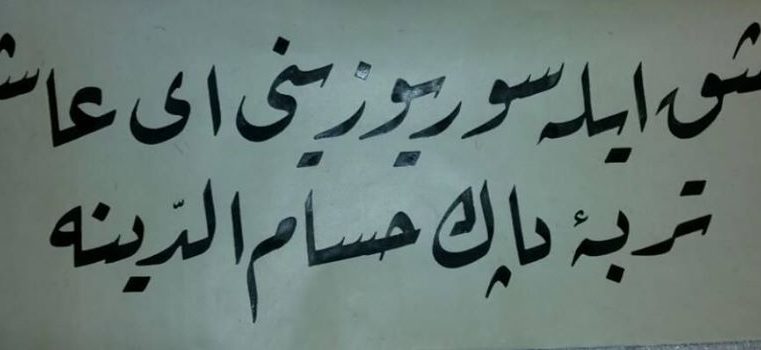 شق ايله سور يوزينى اى عاش
تربهٔ پاك حسام الدّينه